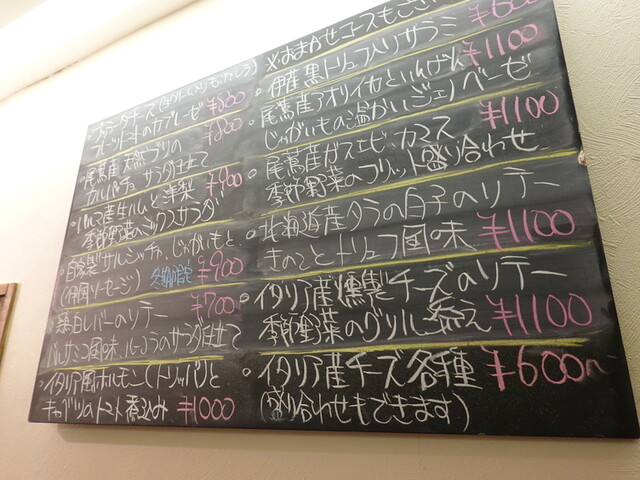 ラビット
¥800
尾鷲産天然ブリの
カルパッチョ サラダ仕立て
パルマ産生ハムと洋梨
季節野菜のミックスサラダ
自家製サルシッチャ、じゃがいもと、
¥900
鶏白レバーのソテー
¥700
バルサミコ風味、ルーコラのサラダ仕立て
イタリア風ホルモン(トリッパ)と
キャベツのトマト煮込み ¥1000
※おまかせコースもござ
伊産黒トリュフ入りサラミ ¥600
尾鷲産アオリイカといんげん ¥1100
じゃがいもの温かいジェノベーゼ
尾鷲産ガスエビ カマス ¥1100
季節野菜のフリット盛り合わせ
北海道産タラの白子のソテー
きのことトリュフ風味 ¥1100
イタリア産燻製チーズのソテー
季節野菜のグリル添え ¥1100
イタリア産チーズ各種 ¥600〜
(盛り合わせもできます)